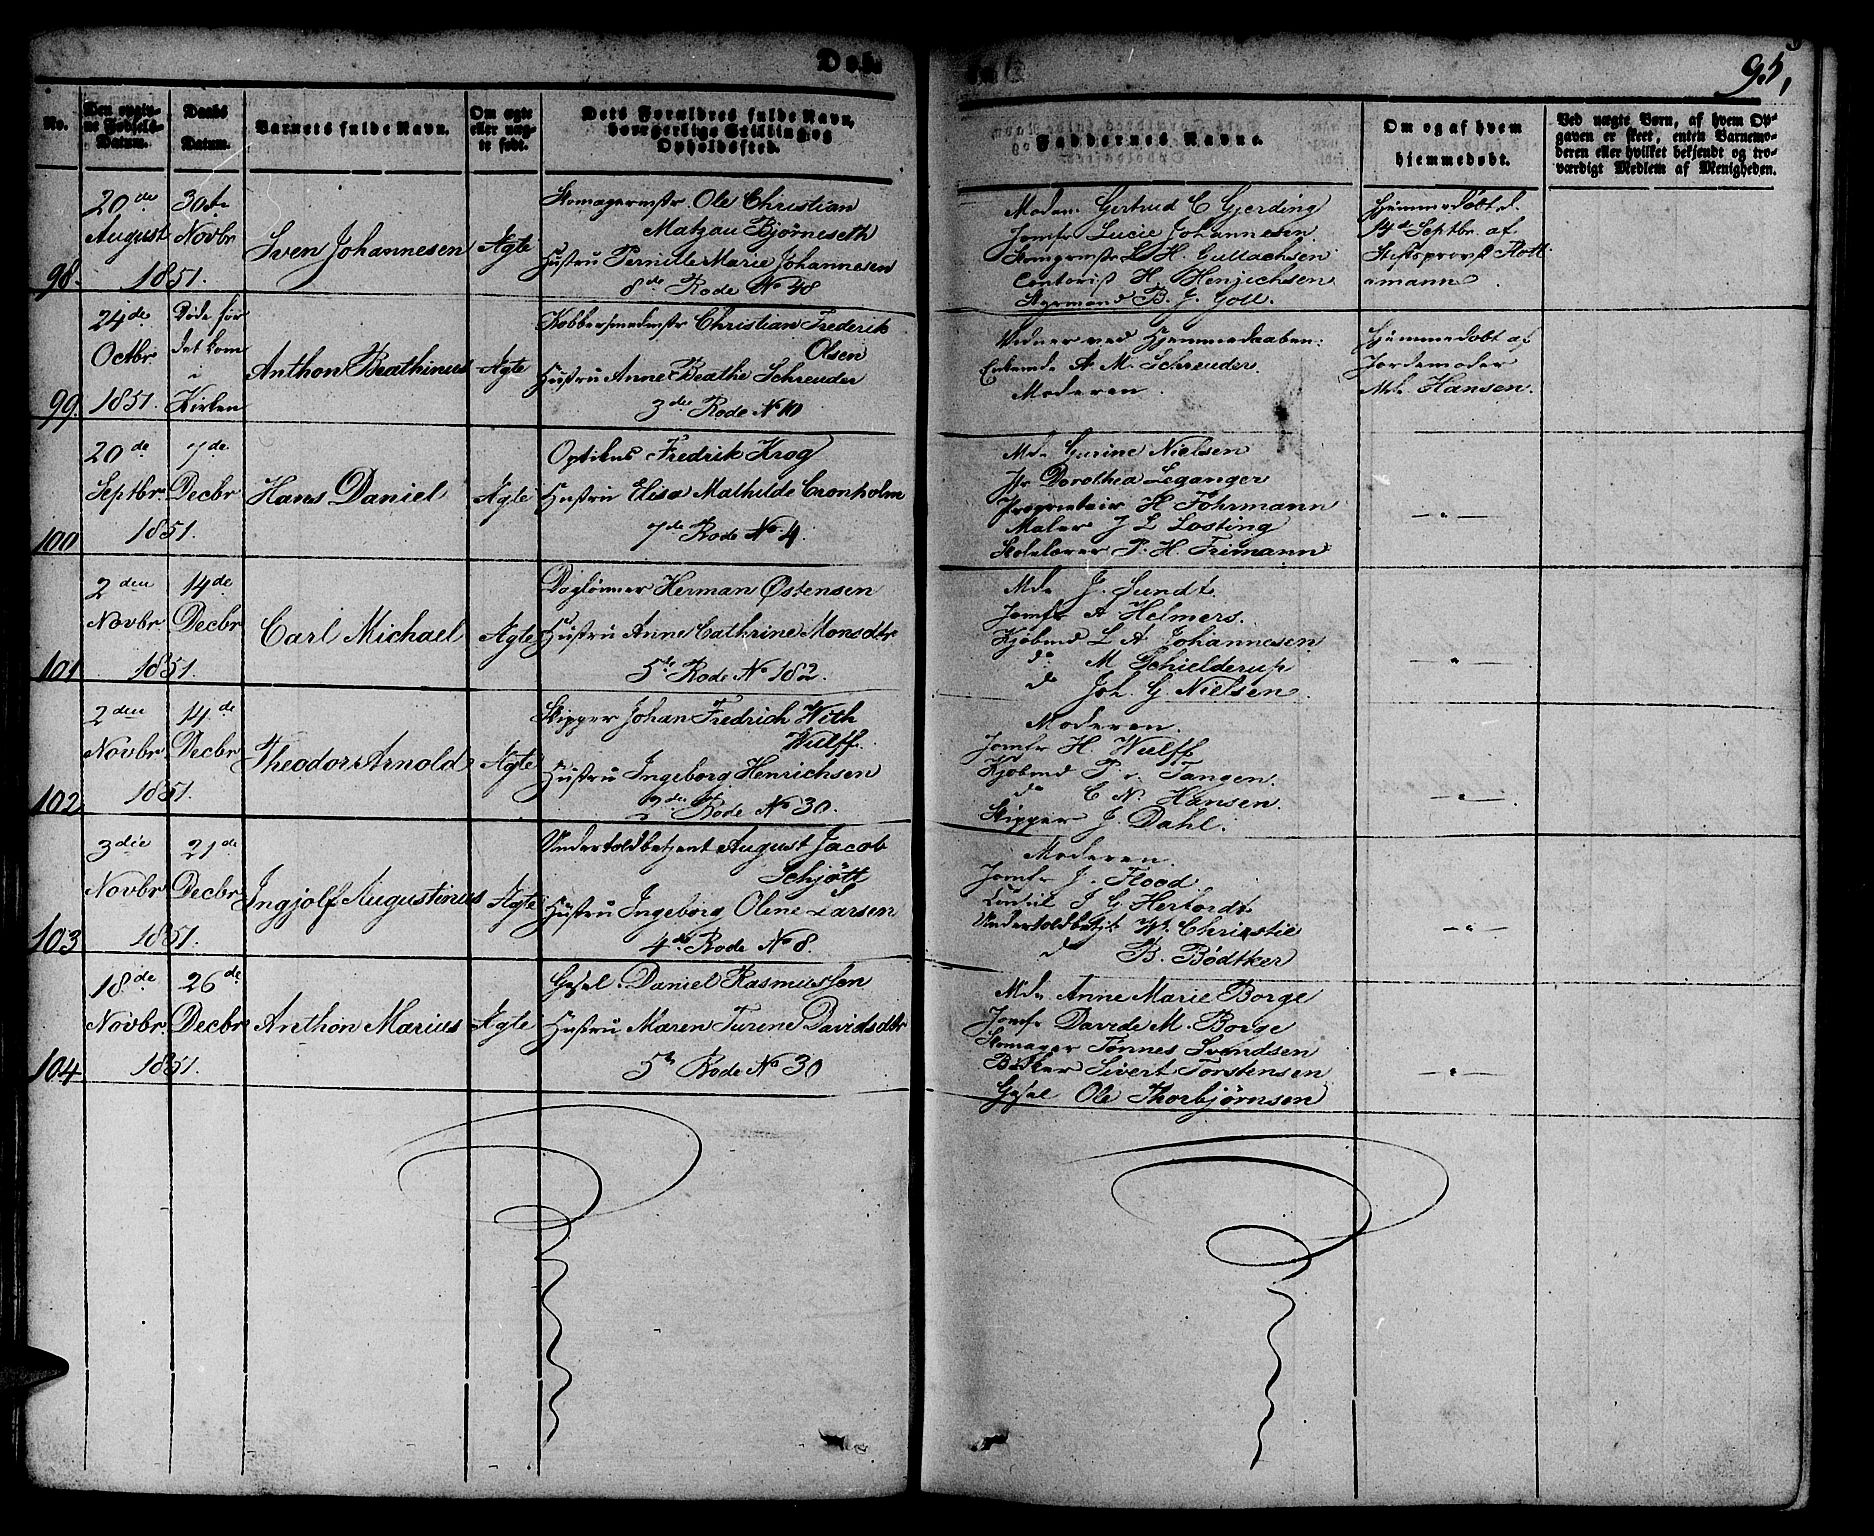 Døb
95,
No.
Den opgivne Fødsels-Datum.
Daabs Datum.
Barnets fulde Navn.
Om ægte eller uægte født.
Dets Forældres fulde Navn, borgerlige Stilling og Opholdssted.
Faddernes Navne.
Om og af hvem hjemmedøbt.
Ved uægte Børn, af hvem Opgaven er skeet, enten Barnemoderen eller hvilket bekjendt og troværdigt Medlem af Menigheden.
98.
20de August
30te Novbr
1851.
Sven Johannesen
Ægte
Skomagermstr. Ole Christian
Matzau Bjørneseth
Hustru Pernille Marie Johannesen
8de Rode No 48
Madm. Gertrud C Gjerding
Jomfr Lucie Johannesen
L. H. Gullachsen
Contorist H. Henrichsen
Styrmand B. J. Goll.
Hjemmedøbt d.
14de Septbr. af
Stiftsprovst
99.
24de Octbr
1851.
Døde før
det kom
i
Kirken
Anthon Beathinus
Ægte
Kobbersmedmstr Christian Frederik
Olsen
Hustru Anne Beathe Schreuder
3de Rode No 10
Vidner ved Hjemmedaaben:
A. M. Schreuder
Moderen.
Hjemmedøbt af
Jordemoder
Md. Hansen.
100
20de Septbr
7de Decbr
1851.
Hans Daniel
Ægte
Optikus Fredrik Krog
Hustru Elisa Mathilde Cronholm
7de Rode No 4.
Md. Gurine Nielsen
Jfr Dorothea Leganger
Proprietair H Föhrmann
Maler J L Losting
Skolelærer P. H. Frimann
— " —
101
2den Novbr
14de Decbr
1851.
Carl Michael
Ægte
Daglønner Herman Østensen
Hustru Anne Cathrine Monsdtr
5te Rode No 182.
Md. J. Sundt.
Jomfr A Helmers.
Kjøbmd L A Johannesen
do M Schielderup
do Joh. G. Nielsen.
— " —
102
2den Novbr
14de Decbr
1851.
Theodor Arnold
Ægte
Skipper Johan Fredrich With
Wulff.
Hustru Ingeborg Henrichsen
Rode No 30.
Moderen.
Jomfr H Wulff
Kjøbmd P. v. Tangen.
do C N. Hansen.
Skipper J. Dahl.
— " —
103
3die Novbr
21de Decbr
1851.
Ingjolf Augustinus
Ægte
Undertoldbetjent August Jacob
Schjøtt
Hustru Ingeborg Oline Larsen
4de Rode No 8.
Moderen.
Jomfr J. Flood.
J G Hertordt.
Undertoldbetjt W. Christie
do B. Bødtker
— " —
104
18de Novbr
26de Decbr
1851.
Anthon Marius
Ægte
Gesel. Daniel Rasmussen
Hustru Maren Turine Davidsdtr
5te Rode No 30
Md. Anne Marie Borge
Jomfr Davide M. Borge
Skomager Tønnes Svendsen
Bødker Sivert Torstensen
Gesel Ole Thorbjørnsen
— " —